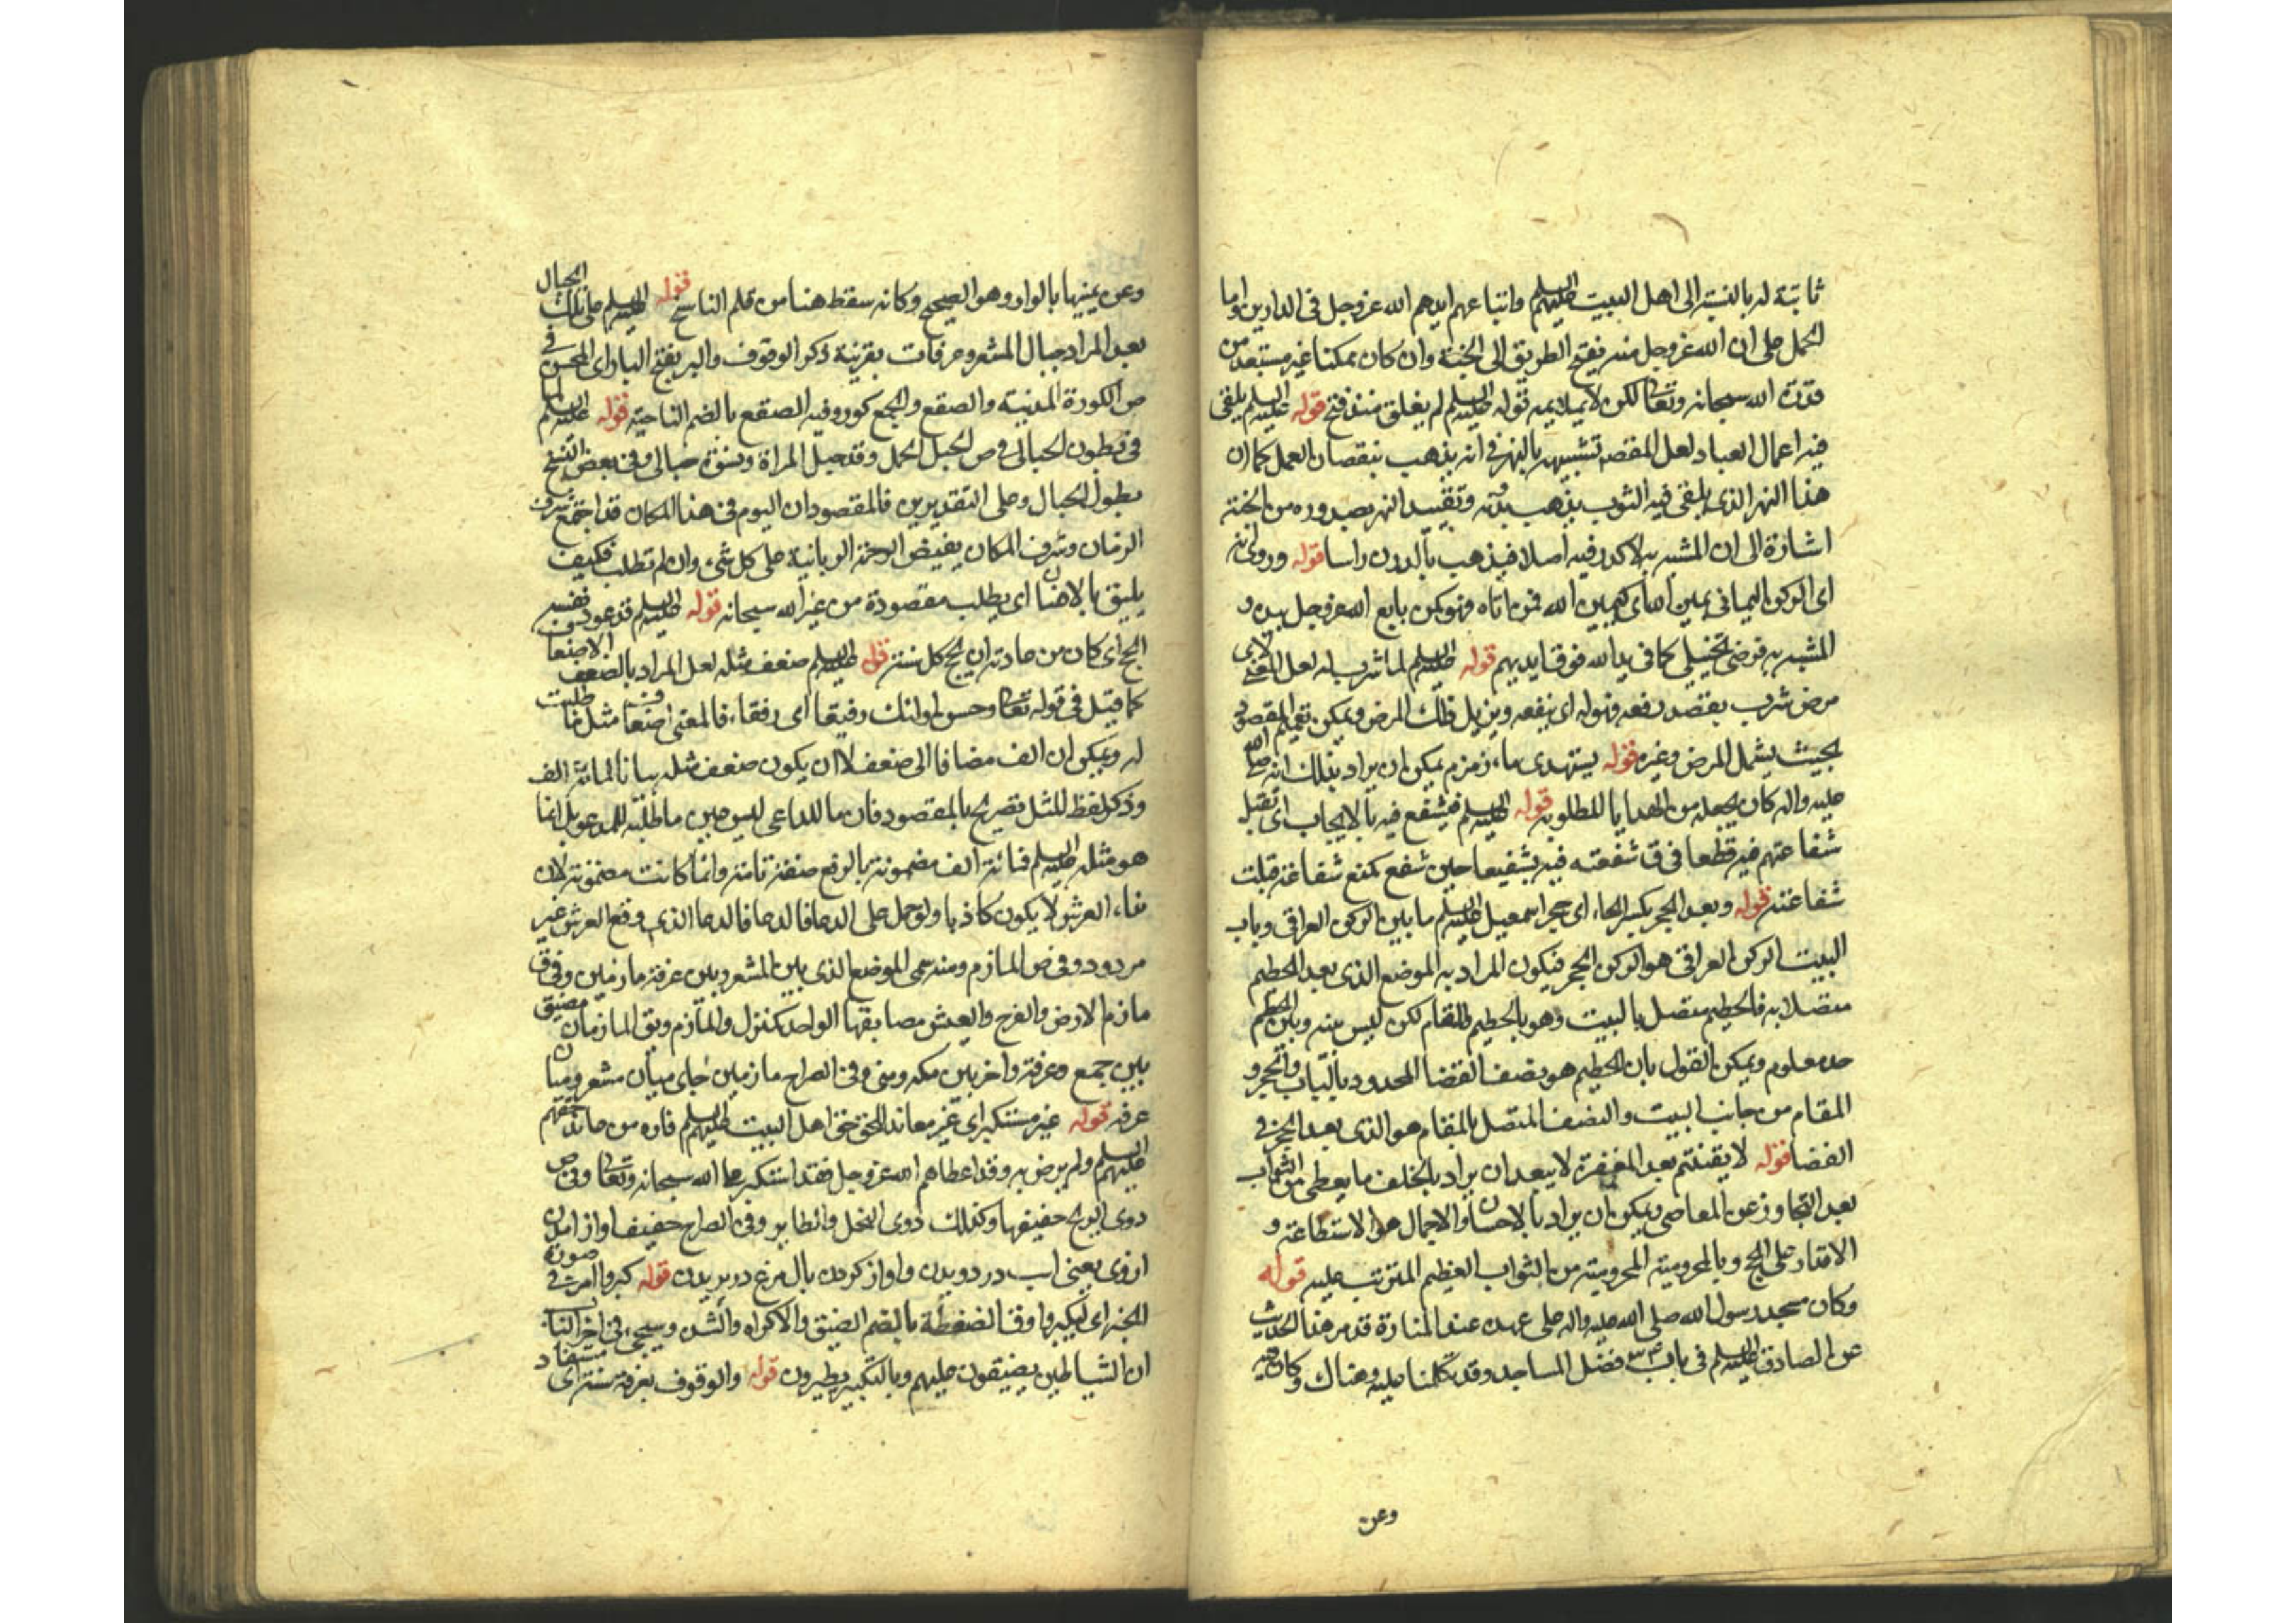 ثابتة له بالنسبة الى اهل البيت عليهم السلم واتباعهم ايدهم الله عز وجل في الدارين واما
الحمل على ان الله عز وجل منه يفتح الطريق الى الجنة وان كان ممكنا غير مستبعد من
قدرة الله سبحانه وتعالى لكن لا يلايمه قوله عليه السلم لم يغلق منذ فتح قوله عليه السلم يلقى
فيه اعمال العباد لعل المقصد تشبيهه بالنهر في انه يذهب بنقصان العمل كما ان
هذا النهر الذي يلقى فيه الثوب يذهب بدرنه وتقييد النهر بصدوره من الجنة
اشارة الى ان المشبه به لا كدر فيه اصلا فيذهب بالدرن راسا قوله وروي انه
اي الركن اليماني يمين الله اي كيمين الله فمن اتاه فهو كمن بايع الله عز وجل بيده و
المشبه به فرضي تخييلي كما في يد الله فوق ايديهم قوله عليه السلم لما شرب له لعل المعنى لاي
مرض شرب بقصد رفعه فهو له اي ينفعه ويزيل ذلك المرض ويمكن تعميم المقصود
بحيث يشمل المرض وغيره قوله يستهدي ماء زمزم يمكن ان يراد بذلك انه صلى الله
عليه واله كان يجعله من الهدايا المطلوبة قوله عليه السلم فيشفع فيه بالايجاب اي تقبل
شفاعتهم فيه قطعا في ق شفعته فيه تشفيعا حين شفع كمنع شفاعة قبلت
شفاعته قوله وبعد الحجر بكسر الحاء اي حجر اسمعيل عليه السلم ما بين الركن العراقي وباب
البيت الركن العراقي هو الركن الحجر فيكون المراد به الموضع الذي بعد الحطيم
متصلا به فالحطيم متصل بالبيت وهو بالحطيم والمقام لكن ليس بينه وبين الحطيم
حد معلوم ويمكن القول بان الحطيم هو نصف الفضا المحدود بالباب والحجر و
المقام من جانب البيت والنصف المتصل بالمقام هو الذي بعد الحجر في
الفضا قوله بعد المغفرة لا يبعد ان يراد بالخلف ما يعطى من الثواب
بعد التجاوز عن المعاصي ويمكن ان يراد بالاحسان والاجمال هو الاستطاعة و
الاقتدار على الحج وبالمحرومية المحرومية من الثواب العظيم المترتب عليه قوله
وكان مسجد رسول الله صلى الله عليه واله على عهده عند المنارة قد مر هذا الحديث
عن الصادق عليه السلم في باب فضل المساجد وقد تكلمنا عليه وهناك وكان فيه
وعن
وعن يمينها بالواو وهو الصحيح وكانه سقط هنا من قلم الناسخ قوله عليه السلم على تلك الجبال
بعد المراد جبال المشعر وعرفات بقرينة ذكر الوقوف والبر بفتح الباء اي المحسن في
ص الكورة المدينة والصقع والجمع كور وفيه الصقع بالضم الناحية قوله عليه السلم
في بطون الحبالى في ص الحبل الحمل وقد حبل المراة ونسوة حبالى وفي بعض النسخ
بطول الجبال وعلى التقديرين فالمقصود ان اليوم في هذا المكان قد اجتمع شرف
الزمان وشرف المكان يفيض الرحمة الربانية على كل شيء وان لم تطلب فكيف
يليق بالانسان اي يطلب مقصودة من غير الله سبحانه قوله عليه السلم قد عود نفسه
الحج اي كان من عادته ان يحج كل سنة قوله عليه السلم ضعف مثله لعل المراد بالضعف الاضعاف
كما قيل في قوله تعالى وحسن اولئك رفيقا اي رفقاء فالمعنى اضعاف مثل ما طلبت
له ويمكن ان الف مضافا الى ضعف لا ان يكون ضعف مثله بيانا لمائة الف
وذكر لفظ المثل تصريح بالمقصود فان ما للداعي ليس عين ما طلبه للمدعو بل انما
هو مثله عليه السلم فمائة الف مضمونة بالرفع صفة ثابتة وانما كانت مضمونة لان
نداء العرش لا يكون كاذبا ولو حمل على الدعا فالدعا فالدعا الذي وقع العرش غير
مردود وفي ص المازم ومنه سمي الموضع الذي بين المشعر وبين عرفة مازمين وفي ق
مازم الارض والفرج والعيش مضايقها الواحد كمنزل والمازم ويق المازمان مضيق
بين جمع وعرفة واخر بين مكه ومنى وفي الصراح مازمين جاي ميان مشعر وميان
عرفه قوله غير مستكبر اي غير معاند للحق حق اهل البيت عليهم السلم فان من عاند حقهم
عليهم السلم ولم يرض به وقد اعطاهم الله عز وجل فقد استكبر على الله سبحانه وتعالى وفي ص
دوي الريح حفيفها وكذلك دوي النحل والطاير وفي الصراح حفيف اواز امدن
ازوي يعني اب در دويدن واواز كردن بال مرغ در پريدن قوله كبروا امر في صورة
الخبر اي ليكبروا وفي ق الضغطة بالضم الضيق والاكراه والشدة وسيجيء في اخر الباب
ان الشياطين يضيقون عليهم وبالتكبير يطيرون قوله والوقوف بعرفة سنة اي مستفاد